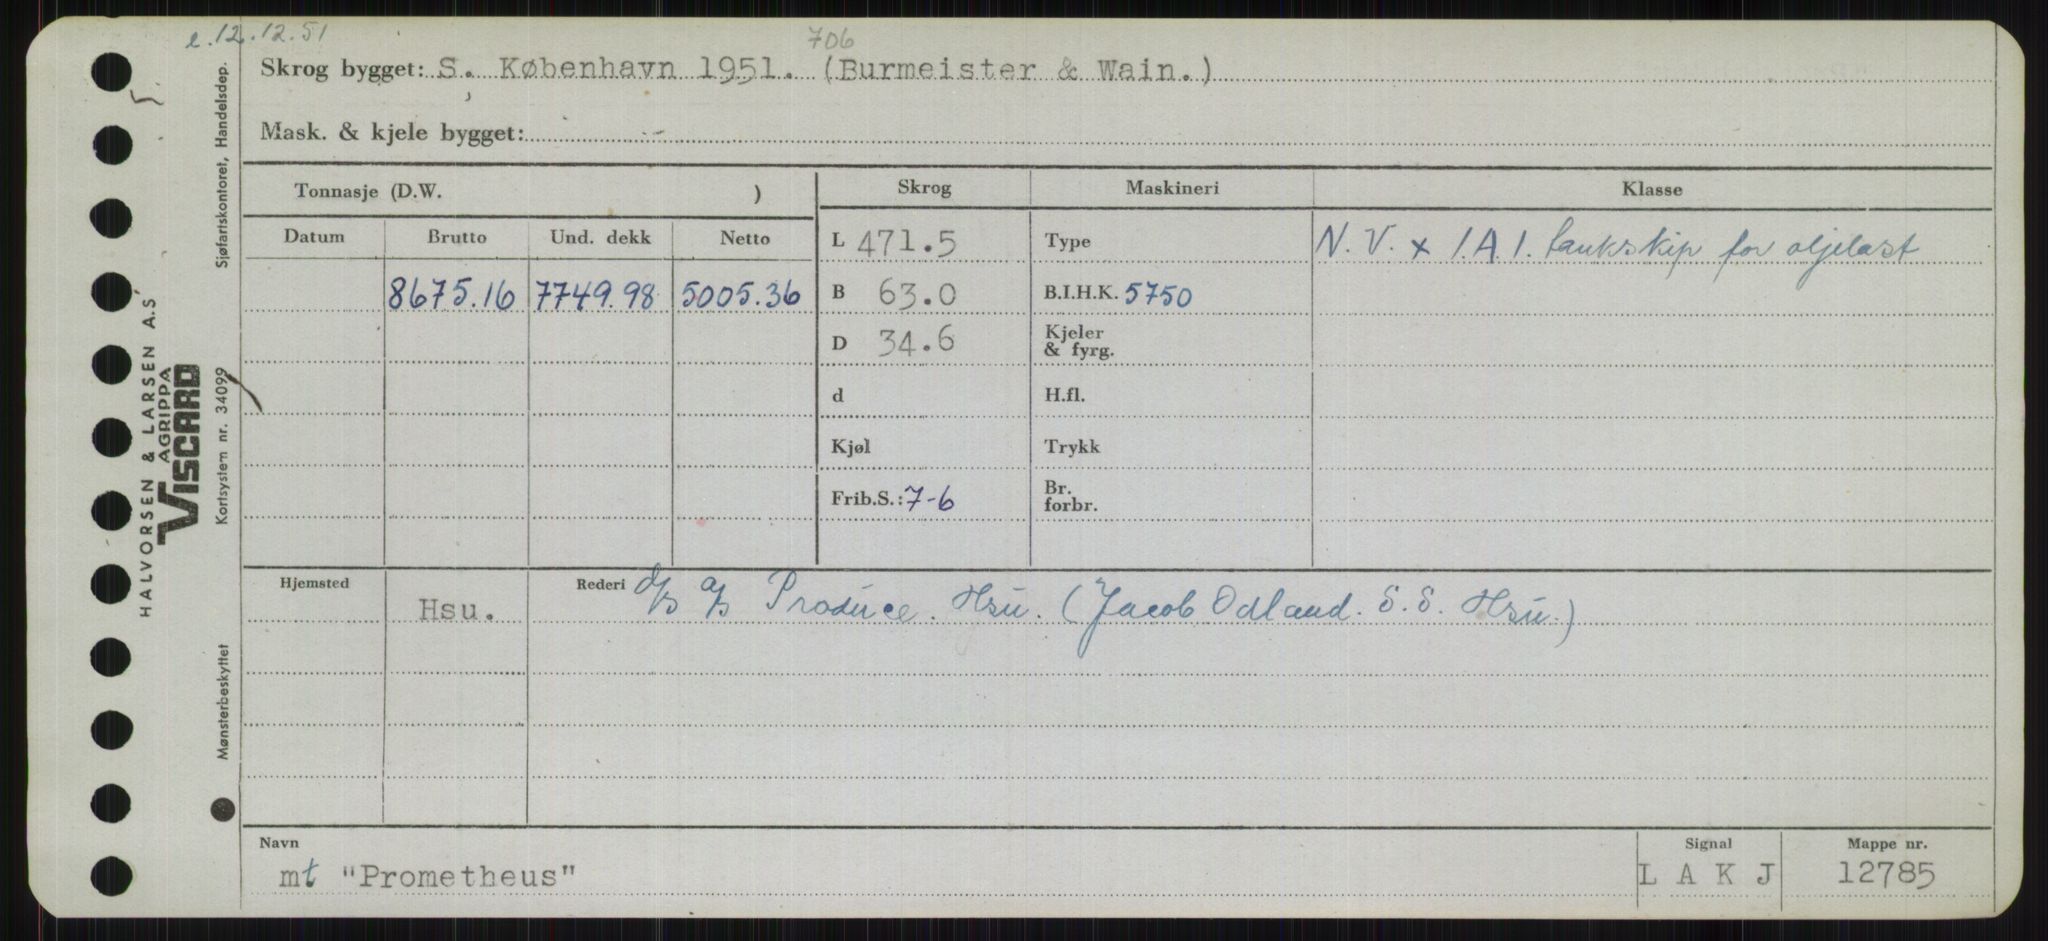 e.12.12.51
706
Skrog bygget: S. København 1951. (Burmeister & Wain.)
Mask. & kjele bygget:
Tonnasje (D.W. ) Skrog Maskineri Klasse
Datum Brutto Und. dekk Netto L 471.5 Type N.V. x 1.A.1. tankskip for oljelast
8675.16 7749.98 5005.36 B 63.0 B.I.H.K. 5750
D 34.6 Kjeler
& fyrg.
d H.fl.
Kjøl Trykk
Frib.S.: 7-6 Br.
forbr.
Hjemsted Hsu. Rederi d/s a/s Produce. Hsu. (Jacob Odland. S.S. Hsu.)
Navn Signal Mappe nr.
mt "Prometheus" L A K J 12785
Sjøfartskontoret, Handelsdep.
HALVORSEN & LARSEN A.S
AGRIPPA
VISCARD
Kortsystem nr. 34099
Mønsterbeskyttet